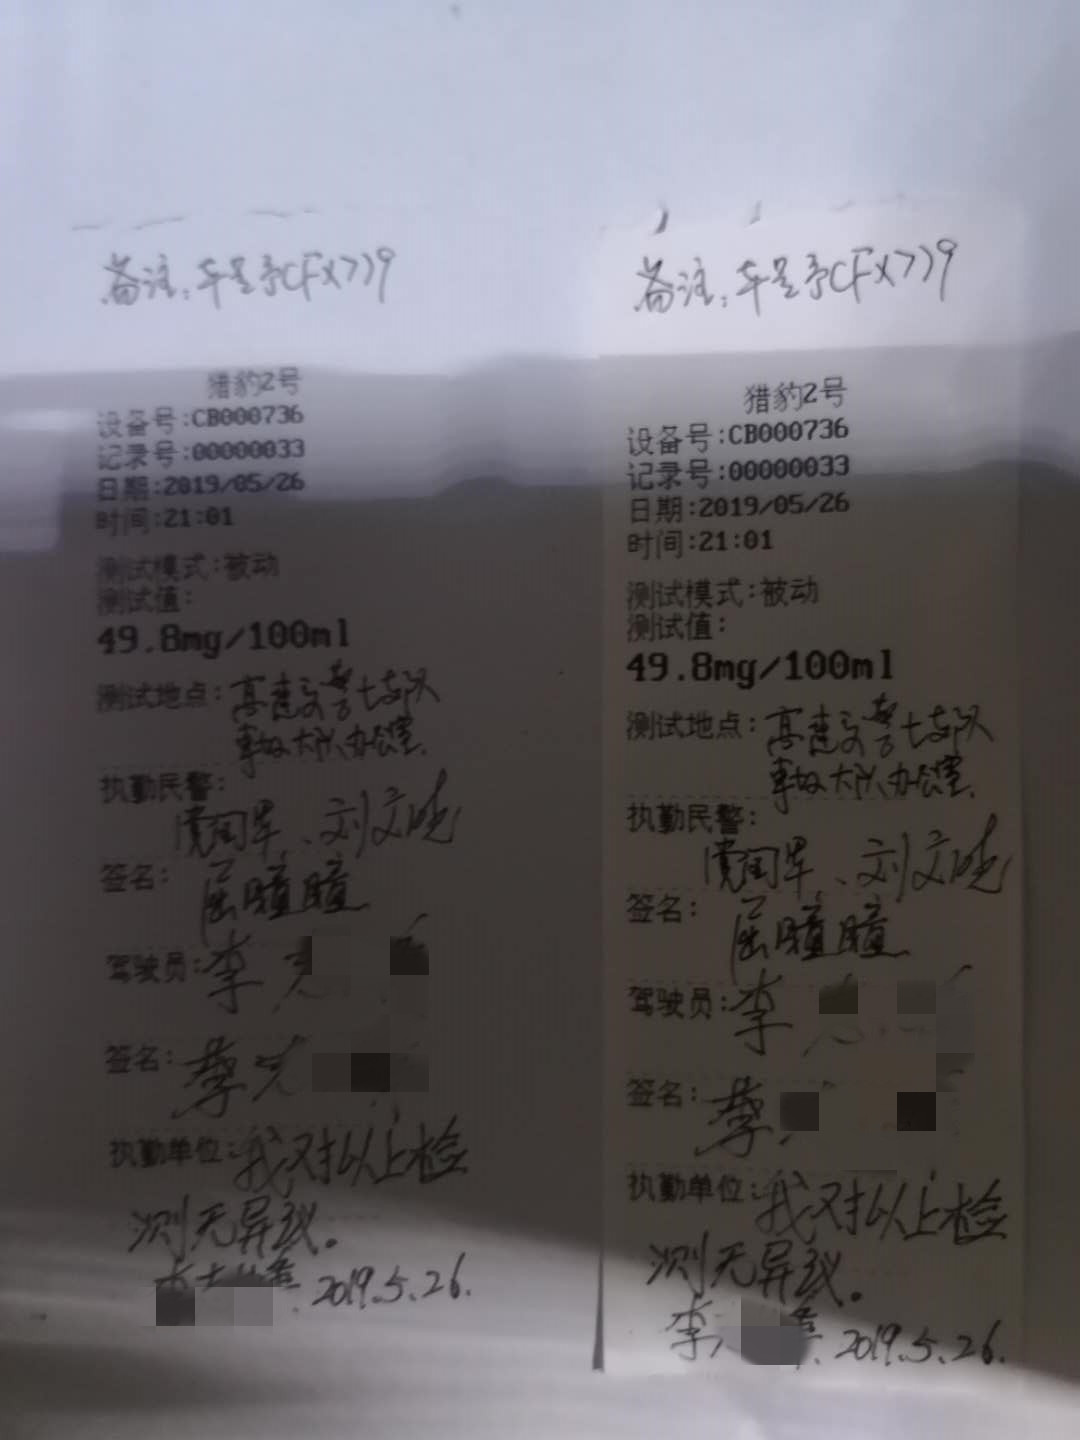 备注:车号豫CFX779
猎豹2号
设备号:CB000736
记录号:00000033
日期:2019/05/26
时间:21:01
测试模式:被动
测试值:
49.8mg/100ml
测试地点:高速交警七支队
事故大队办公室.
执勤民警:
刘文晓
签名:屈瞳瞳
驾驶员:李
签名:李
执勤单位:我对以上检
测无异议。
2019.5.26.
备注:车号豫CFX779
猎豹2号
设备号:CB000736
记录号:00000033
日期:2019/05/26
时间:21:01
测试模式:被动
测试值:
49.8mg/100ml
测试地点:高速交警七支队
事故大队办公室.
执勤民警:
刘文晓
签名:屈瞳瞳
驾驶员:李
签名:李
执勤单位:我对以上检
测无异议。
李 2019.5.26.